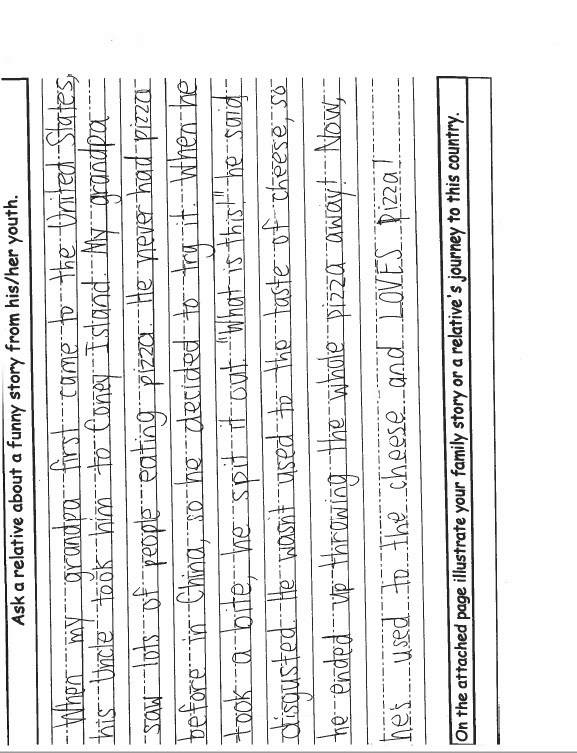 Ask a relative about a funny story from his/her youth.
When my grandpa first came to the United States,
his Uncle took him to Coney Island. My grandpa
saw lots of people eating pizza. He never had pizza
before in China, so he decided to try it. When he
took a bite, he spit it out. "What is this!" he said
disgusted. He wasn't used to the taste of cheese, so
he ended up throwing the whole pizza away! Now,
he's used to the cheese and LOVES pizza!
On the attached page illustrate your family story or a relative's journey to this country.